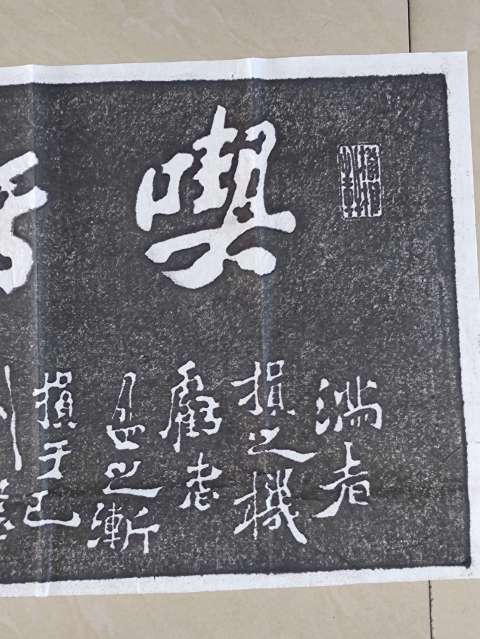 喫
滿者
損之機
虧者
盈之漸
損于己